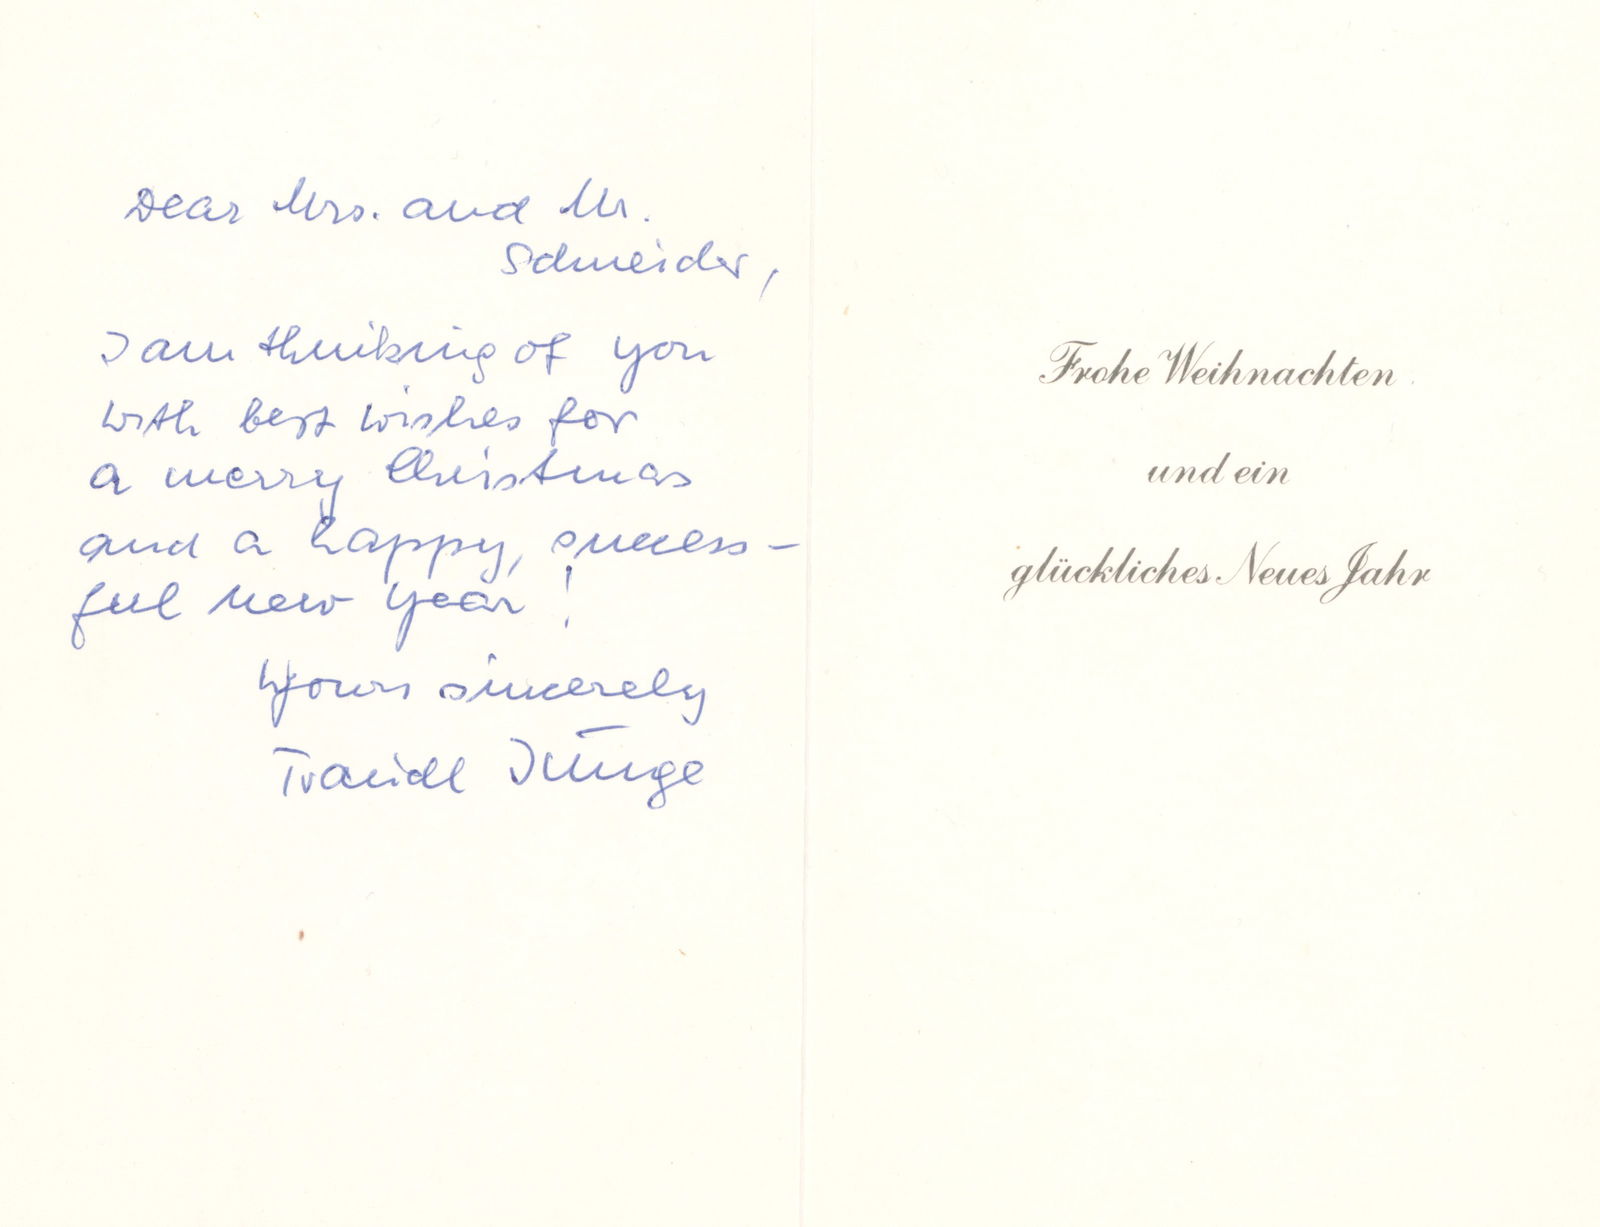 Dear Mrs. and Mr.
Schneider,
I am thinking of you
with best wishes for
a merry Christmas
and a happy, success-
ful new year!
Yours sincerely
Traudl Junge
Frohe Weihnachten
und ein
glückliches Neues Jahr